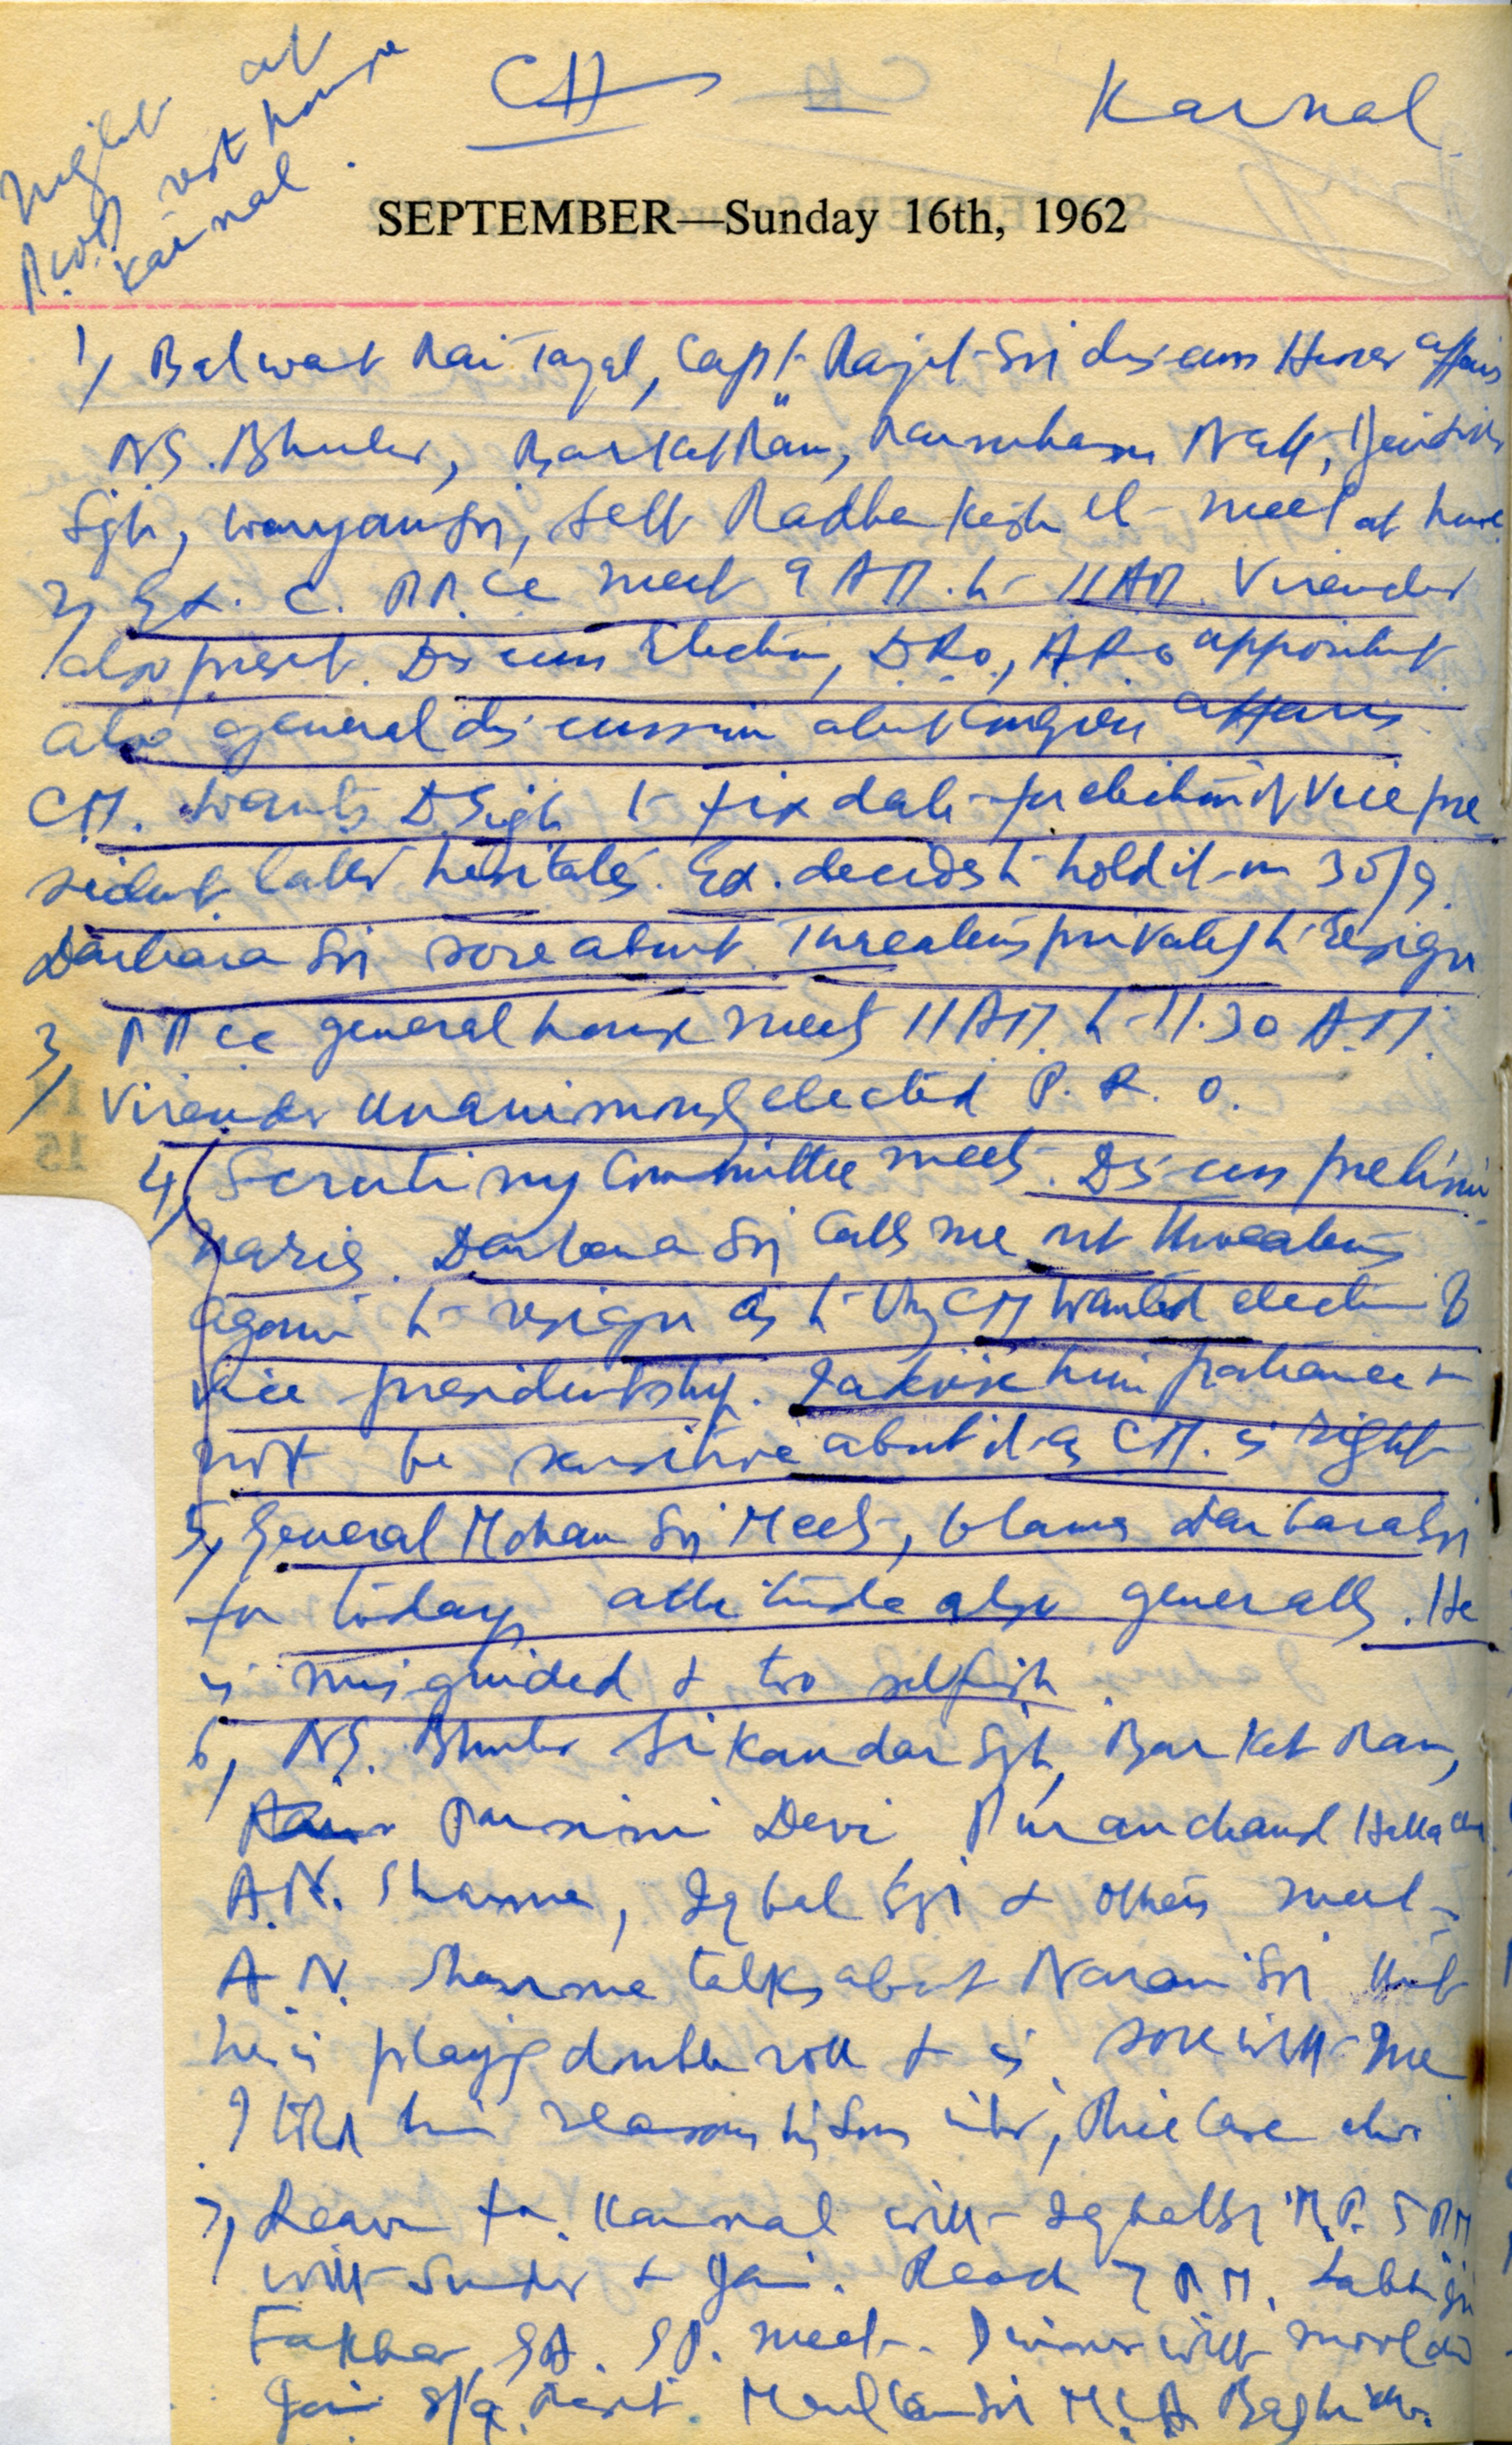 Night at
P.W.D rest house
Karnal.
CH
Karnal
SEPTEMBER—Sunday 16th, 1962
1, Balwant Rai Tayal, Capt Ranjit Sri discuss Hissar affairs
N.S. Bhuler, Barkat Ram, Nath,
Sgh, Waryam Sri, Seth Radha Kish etc meet at house
2, Ex. C. PPCC meet 9 AM. to 11 AM. Virender
also present. Discuss Election, D.R.O., A.R.O appointment
also general discussion about Congress affairs
CM. wants D Sigh to fix date for election of Vice pre
sident latter hesitates. Ex. decides to hold it on 30/9.
Darbara Sri sore about. Threatens privately to resign
3, PPCC general house meets 11 AM. to 11.30 A.M.
Virender unanimously elected P. R. O.
4, Scrutiny Committee meets. Discuss prelimi
naries. Darbara Sri calls me out threatens
again to resign as to why CM wanted election of
Vice presidentship. I advise him patience &
not be sensitive about it as CM. is right
5, General Mohan Sri Meets, blames Darbara Sri
for todays attitude also generally. He
is misguided & too selfish.
6, N.S. Bhuler Sikandar Sgh, Barket Ram,
Devi, Puranchand
A.N. Sharma, Iqbal Sri & others meet
A.N. Sharma talks about Narain Sri that
he is playig double roll & is sore with me
I told him reasons his Son
7, Leave for Karnal with Iqbal Sri M.P. 5 PM
with & Jai. Reach 7 PM. Labh Sri
S.P. meet. Dinner with
Jai Sri M.L.A